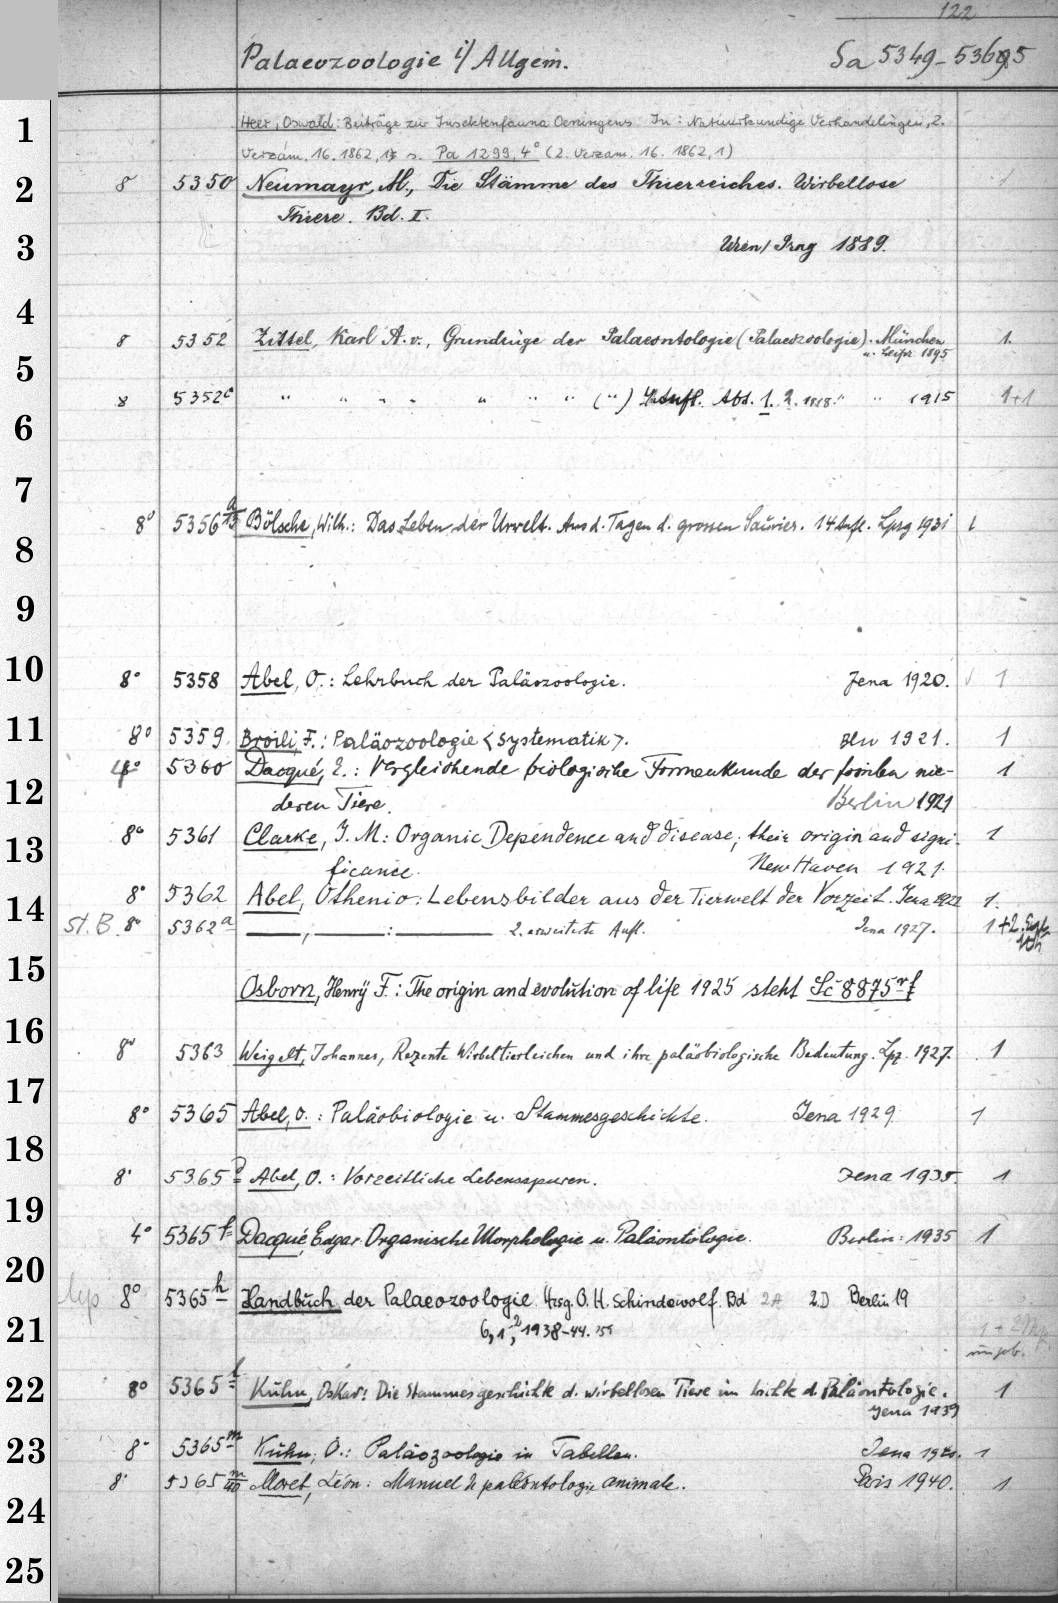 122
Palaeozoologie i/Allgem. Sa 5349-5365
1 Heer, Oswald: Beiträge zur Insektenfauna Oeningens. In: Natuurkundige Verhandelingen, 2.
Verzam. 16. 1862, s. Pa 1299, 4° (2. Verzam. 16. 1862, 1)
2 8 5350 Neumayr, M., Die Stämme des Thierreiches. Wirbellose 1
Thiere. Bd. I.
3 Wien/Prag 1889.
4
8 5352 Zittel, Karl A. v., Grundzüge der Palaeontologie (Palaeozoologie). München 1.
u. Leipz. 1895
5
8 5352c " " " " " " " (") Aufl. Abt. 1. 2. 1918. " " 1915 1+1
6
7
8° 5356 Bölsche, Wilh.: Das Leben der Urwelt. Aus d. Tagen d. grossen Saurier. 14 Aufl. Lpzg 1931 1
8
9
10 8° 5358 Abel, O.: Lehrbuch der Paläozoologie. Jena 1920. 1
11 8° 5359 Broili, F.: Paläozoologie <Systematik>. Bln 1921. 1
4° 5360 Dacqué, E.: Vergleichende biologische Formenkunde der fossilen nie- 1
12 deren Tiere. Berlin 1921
13 8° 5361 Clarke, J. M.: Organic Dependence and disease; their origin and signi- 1
ficance. New Haven 1921.
14 8° 5362 Abel, Othenio: Lebensbilder aus der Tierwelt der Vorzeit. Jena 1922 1.
St. B. 8° 5362a —, —: — 2. erweiterte Aufl. Jena 1927. 1+2.
15 Osborn, Henry F.: The origin and evolution of life 1925 steht Sc 8875
16
8° 5363 Weigelt, Johannes, Rezente Wirbeltierleichen und ihre paläobiologische Bedeutung. Lpz. 1927. 1
17 8° 5365 Abel, O.: Paläobiologie u. Stammesgeschichte. Jena 1929. 1
18 8° 5365 Abel, O.: Vorzeitliche Lebensspuren. Jena 1935. 1
19
4° 5365f Dacqué, Edgar Organische Morphologie u. Paläontologie. Berlin: 1935 1
20 8° 5365h Handbuch der Palaeozoologie. Hrsg. O. H. Schindewolf. Bd 2A 2D Berlin 19
21 6, 1, 2 1938-44.
1 + 2
22 8° 5365l Kühn, Oskar: Die Stammesgeschichte d. wirbellosen Tiere im Lichte d. Paläontologie. 1
Jena 1939
23 8° 5365m Kühn, O.: Paläozoologie in Tabellen. Jena 1
8° 5365 Moret, Léon: Manuel de paléontologie animale. Paris 1940. 1
24
25